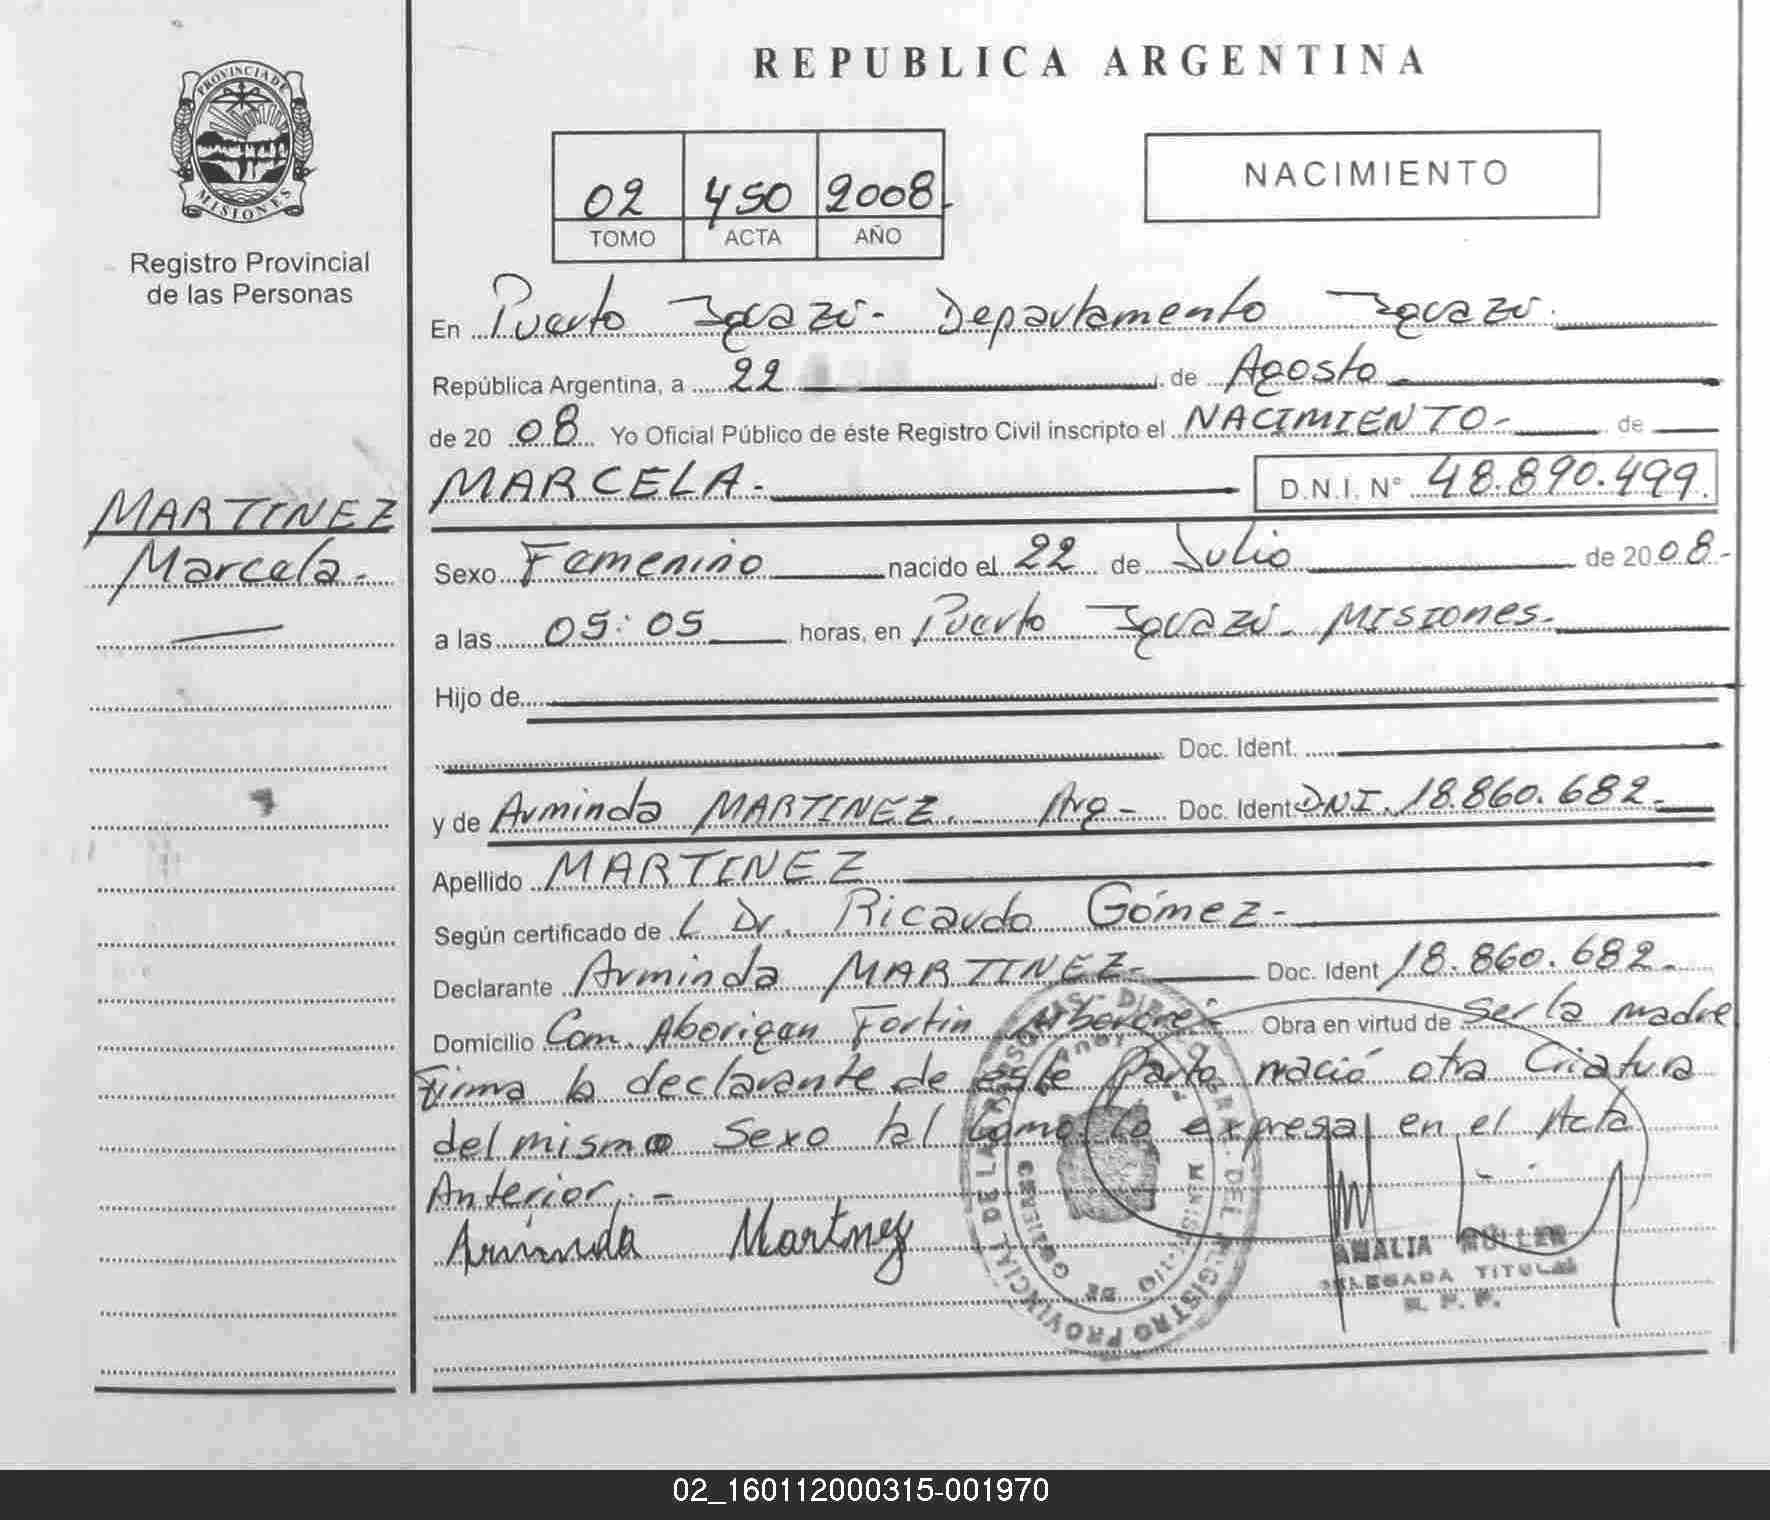 PROVINCIA DE
MISIONES
Registro Provincial
de las Personas
MARTINEZ
Marcela.-
REPUBLICA ARGENTINA
02 450 2008.
TOMO ACTA AÑO
NACIMIENTO
En Puerto Iguazú- Departamento Iguazú.
República Argentina, a 22 de Agosto
de 20 08 Yo Oficial Público de éste Registro Civil inscripto el NACIMIENTO- de
MARCELA.- D.N.I. N° 48.890.499.
Sexo Femenino nacido el 22 de Julio de 2008.-
a las 05:05 horas, en Puerto Iguazú- MISIONES.-
Hijo de
Doc. Ident.
y de Arminda MARTINEZ.- Arg- Doc. Ident DNI. 18.860.682.-
Apellido MARTINEZ
Según certificado de L Dr. Ricardo Gómez-
Declarante Arminda MARTINEZ- Doc. Ident 18.860.682.-
Domicilio Com. Aborigen Fortin Mbororé- Obra en virtud de ser la madre
Firma la declarante de este Parto nació otra Criatura
del mismo Sexo tal Como lo expresa en el Acta
Anterior.-
Arminda Martinez
REGISTRO PROVINCIAL DE LAS PERSONAS - DIRECCION GRAL. DEL
MINISTERIO DE GOBIERNO
AMALIA MÜLLER
DELEGADA TITULAR
R. P. P.
02_160112000315-001970